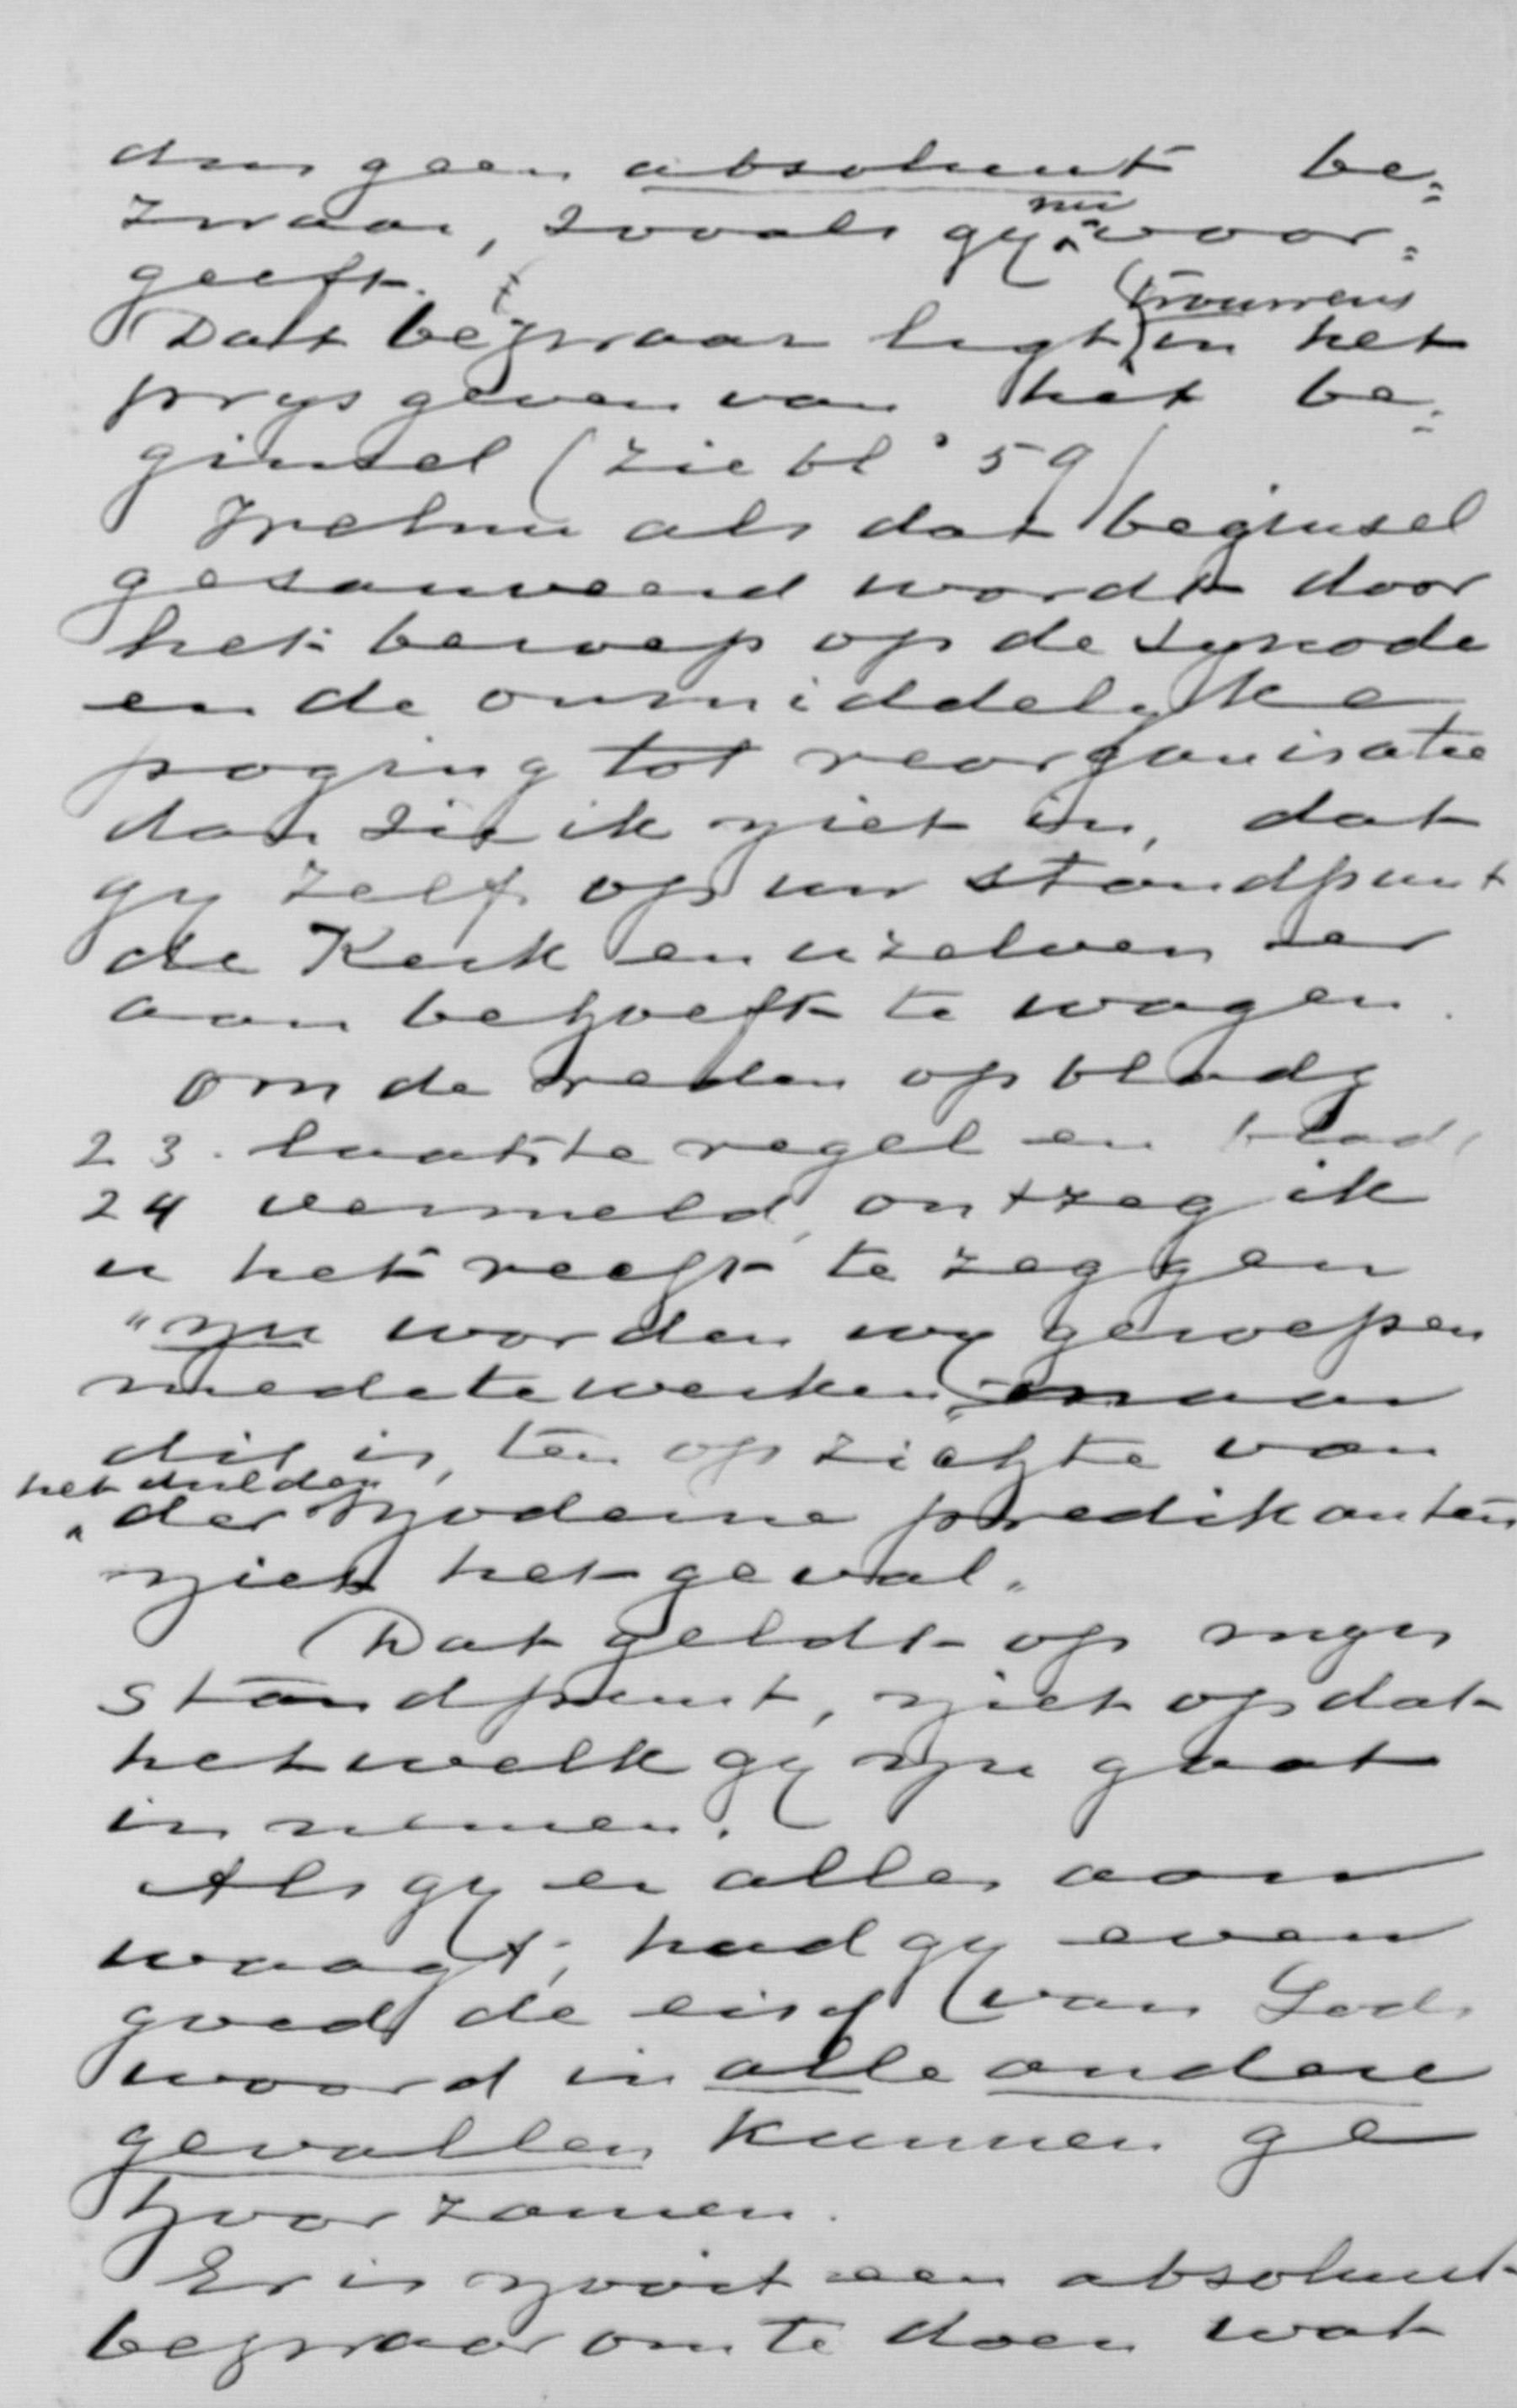 dus geen absoluut be=
zwaar, zooals gy nu voor=
geeft.
Dat bezwaar ligt trouwens in het
prysgeven van het be=
ginsel (zie bl. 59)
Welnu als dat beginsel
gesauveerd wordt door
het beroep op de synode
en de onmiddelyke
poging tot reorganisatie
dan zie ik niet in, dat
gy zelf op uw standpunt
de Kerk en uzelven er
aan behoeft te wagen.
Om de reden op bladz
23. laatste regel en blad
24 vermeld, ontzeg ik
u het recht te zeggen
"nu worden wy geroepen
mede te werken," maar
dit is, ten opzichte van
het dulden
der Moderne predikanten
niet het geval.
Dat geldt op myn
standpunt, niet op dat
hetwelk gy nu gaat
innemen.
Als gy er alles aan
waagt, had gy even
goed de eisch van Gods
woord in alle andere
gevallen kunnen ge
hoorzamen.
Er is nooit een absoluut
bezwaar om te doen wat